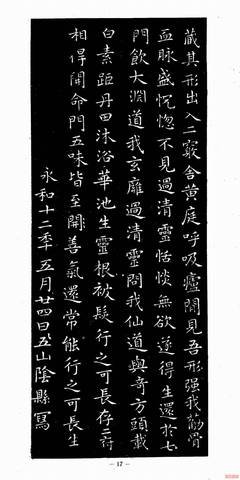 藏其形出入二竅舍黄庭呼吸廬間見吾形强我筋骨
血脉盛怳惚不見過清靈恬惔無欲遂得生還於七
門飲大淵道我玄廱過清靈問我仙道與奇方頭載
白素距丹田沐浴華池生靈根被髮行之可長存二府
相得開命門五味皆至開善氣還常能行之可長生
永和十二年五月廿四日五山陰縣寫
- 17 -